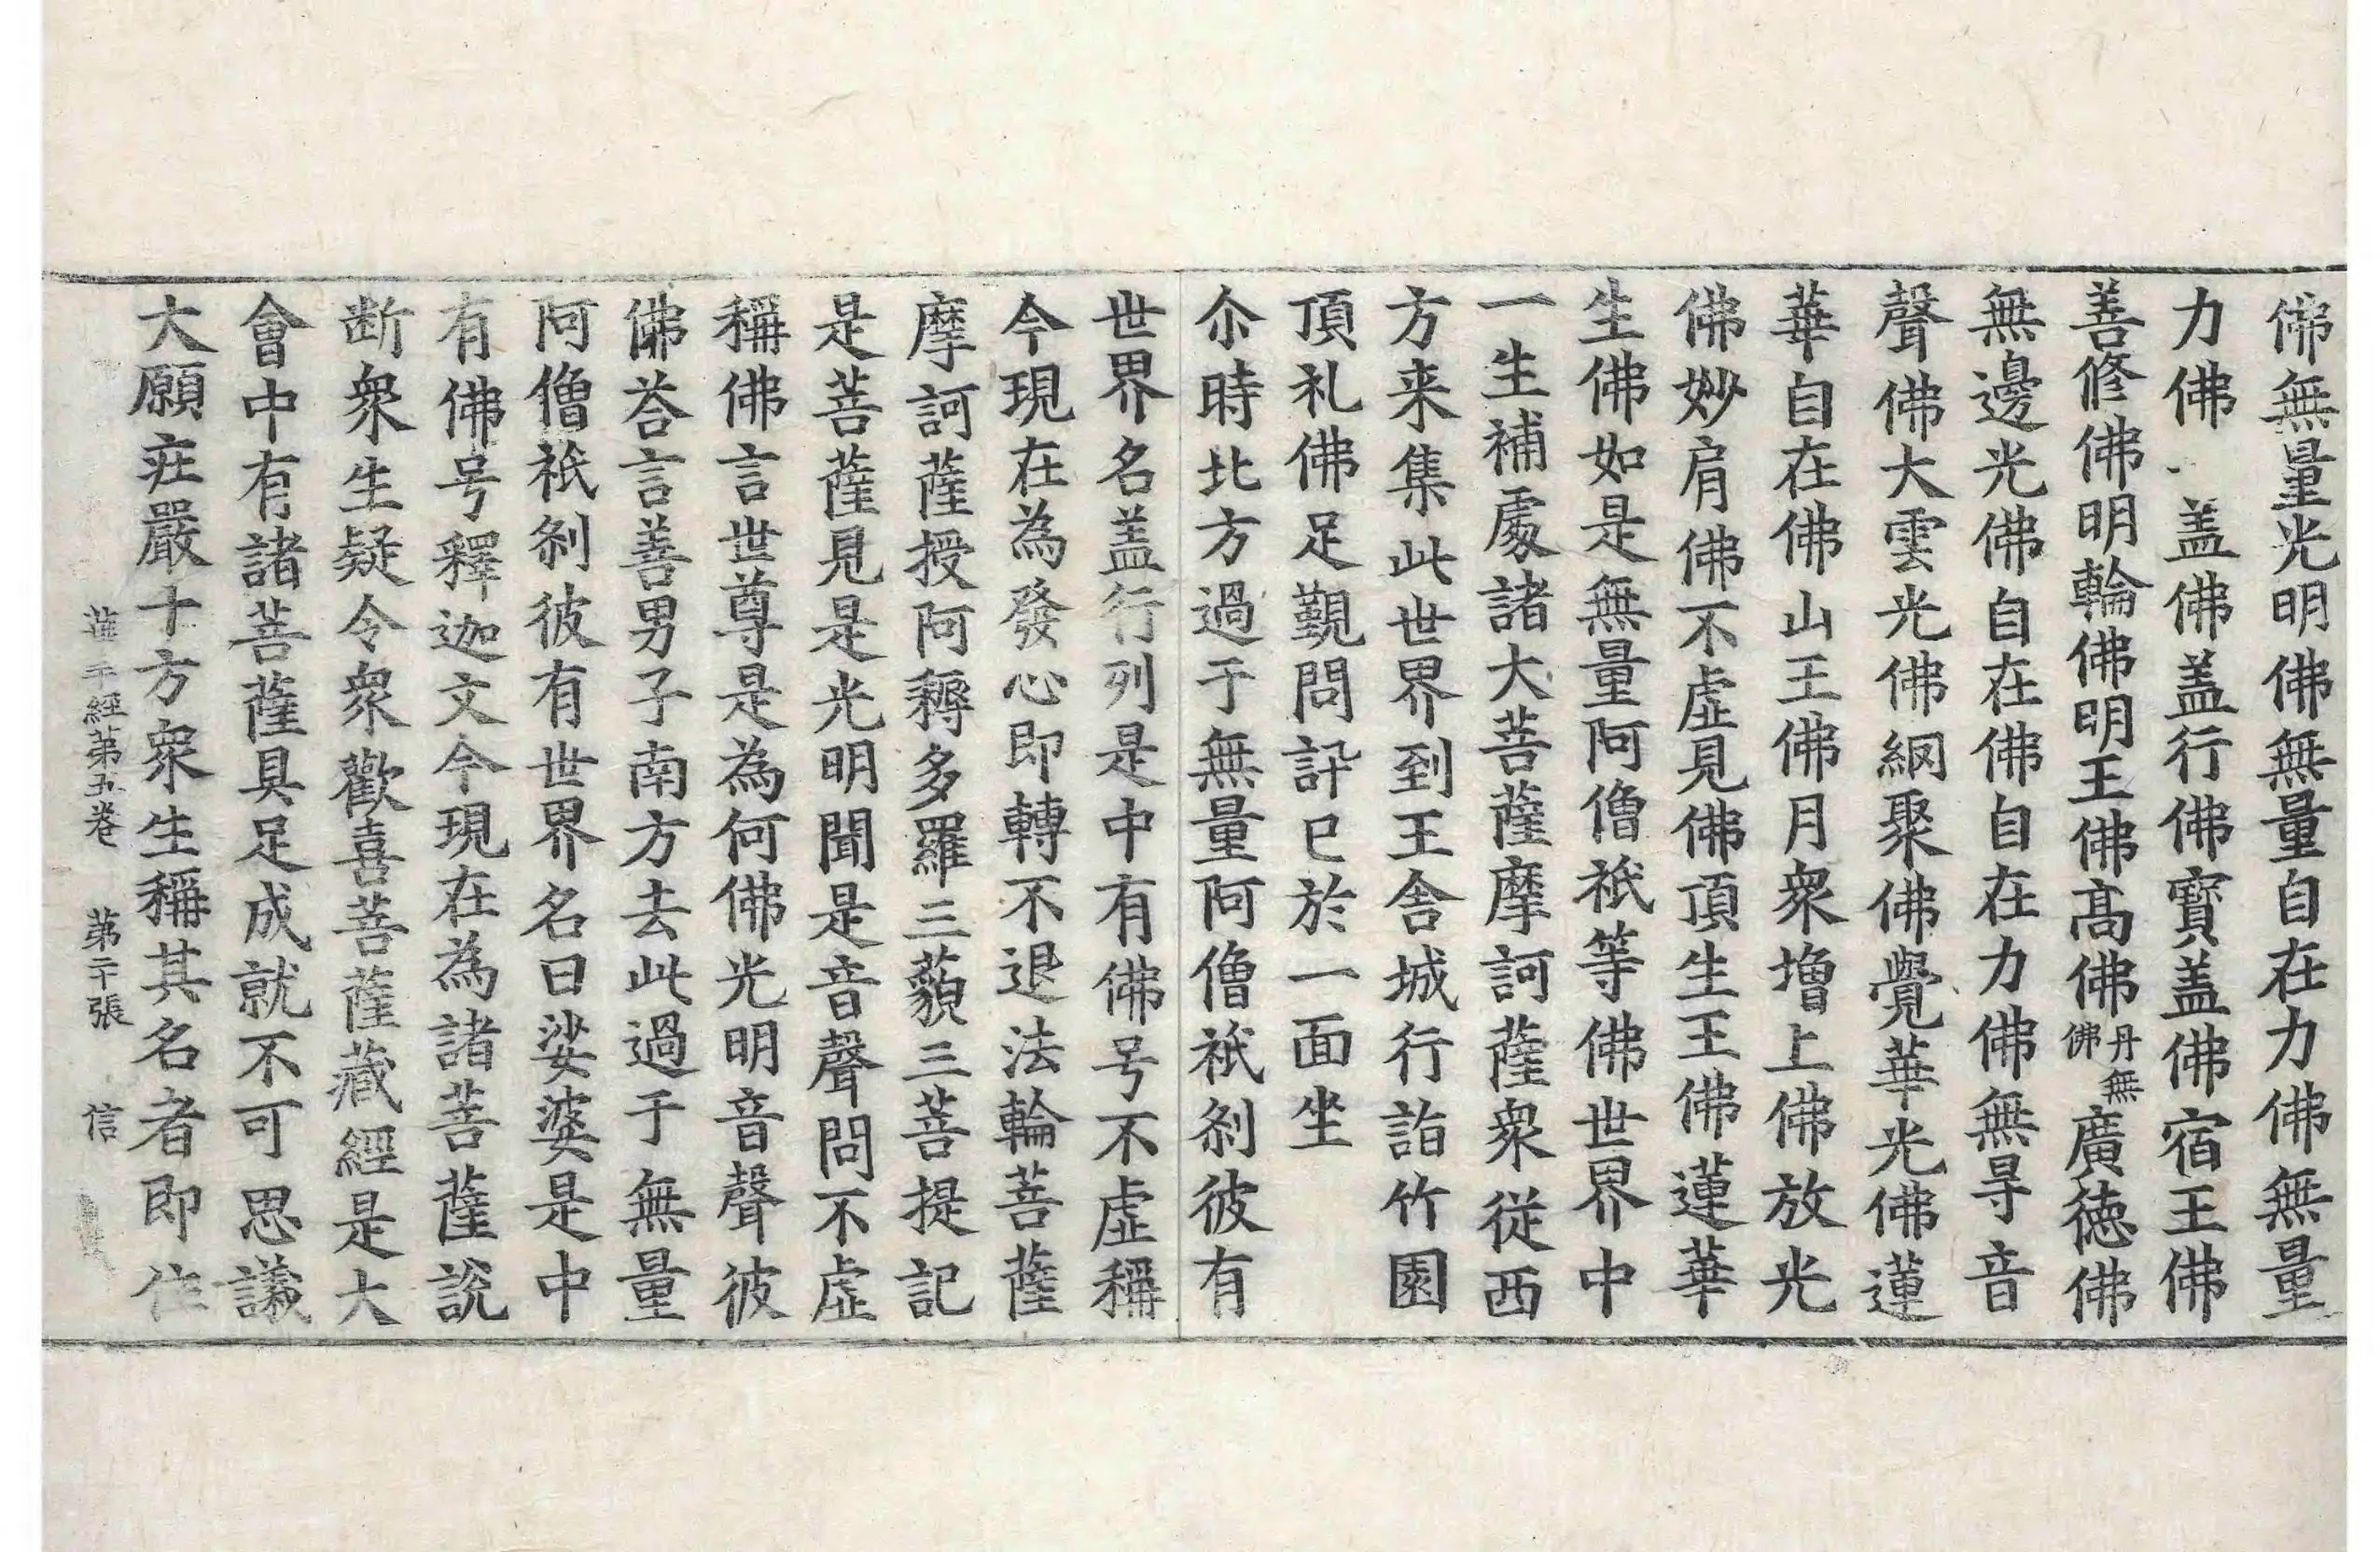 佛無量光明佛無量自在力佛無量
力佛盖佛盖行佛寶盖佛宿王佛
善修佛明輪佛明王佛髙佛丹無佛廣徳佛
無邊光佛自在佛自在力佛無㝵音
聲佛大雲光佛網聚佛覺華光佛蓮
華自在佛山王佛月衆增上佛放光
佛妙肩佛不虛見佛頂生王佛蓮華
生佛如是無量阿僧祇等佛世界中
一生補處諸大菩薩摩訶薩衆從西
方来集此世界到王舍城行詣竹園
頂礼佛足覲問訊已於一面坐
尒時北方過于無量阿僧祇剎彼有
世界名盖行列是中有佛号不虛稱
今現在為發心即轉不退法輪菩薩
摩訶薩授阿耨多羅三藐三菩提記
是菩薩見是光明聞是音聲問不虛
稱佛言世尊是為何佛光明音聲彼
佛荅言善男子南方去此過于無量
阿僧祇剎彼有世界名曰娑婆是中
有佛号釋迦文今現在為諸菩薩說
断衆生疑令衆歡喜菩薩藏經是大
會中有諸菩薩具足成就不可思議
大願荘嚴十方衆生稱其名者即住
華手經第五卷 第二十張 信